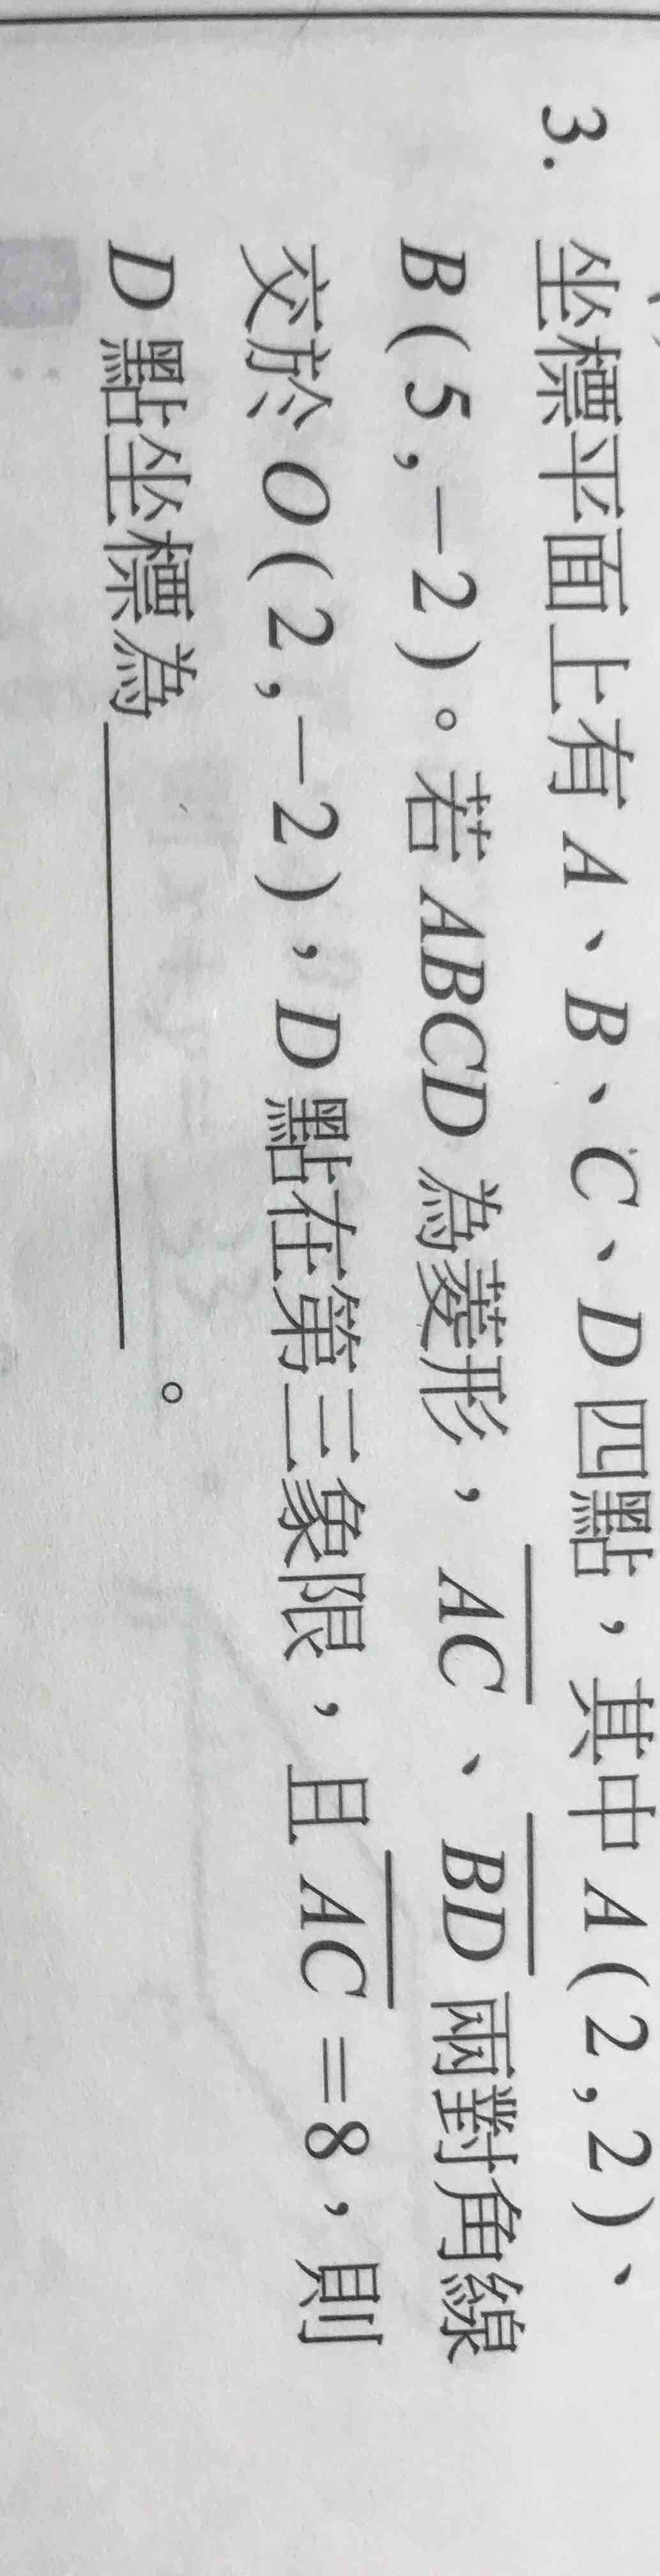 3. 坐標平面上有 A、B、C、D 四點，其中 A(2,2)、
B(5,-2)。若 ABCD 為菱形，AC、BD 兩對角線
交於 O(2,-2)，D 點在第三象限，且 AC=8，則
D 點坐標為＿＿＿＿＿＿。